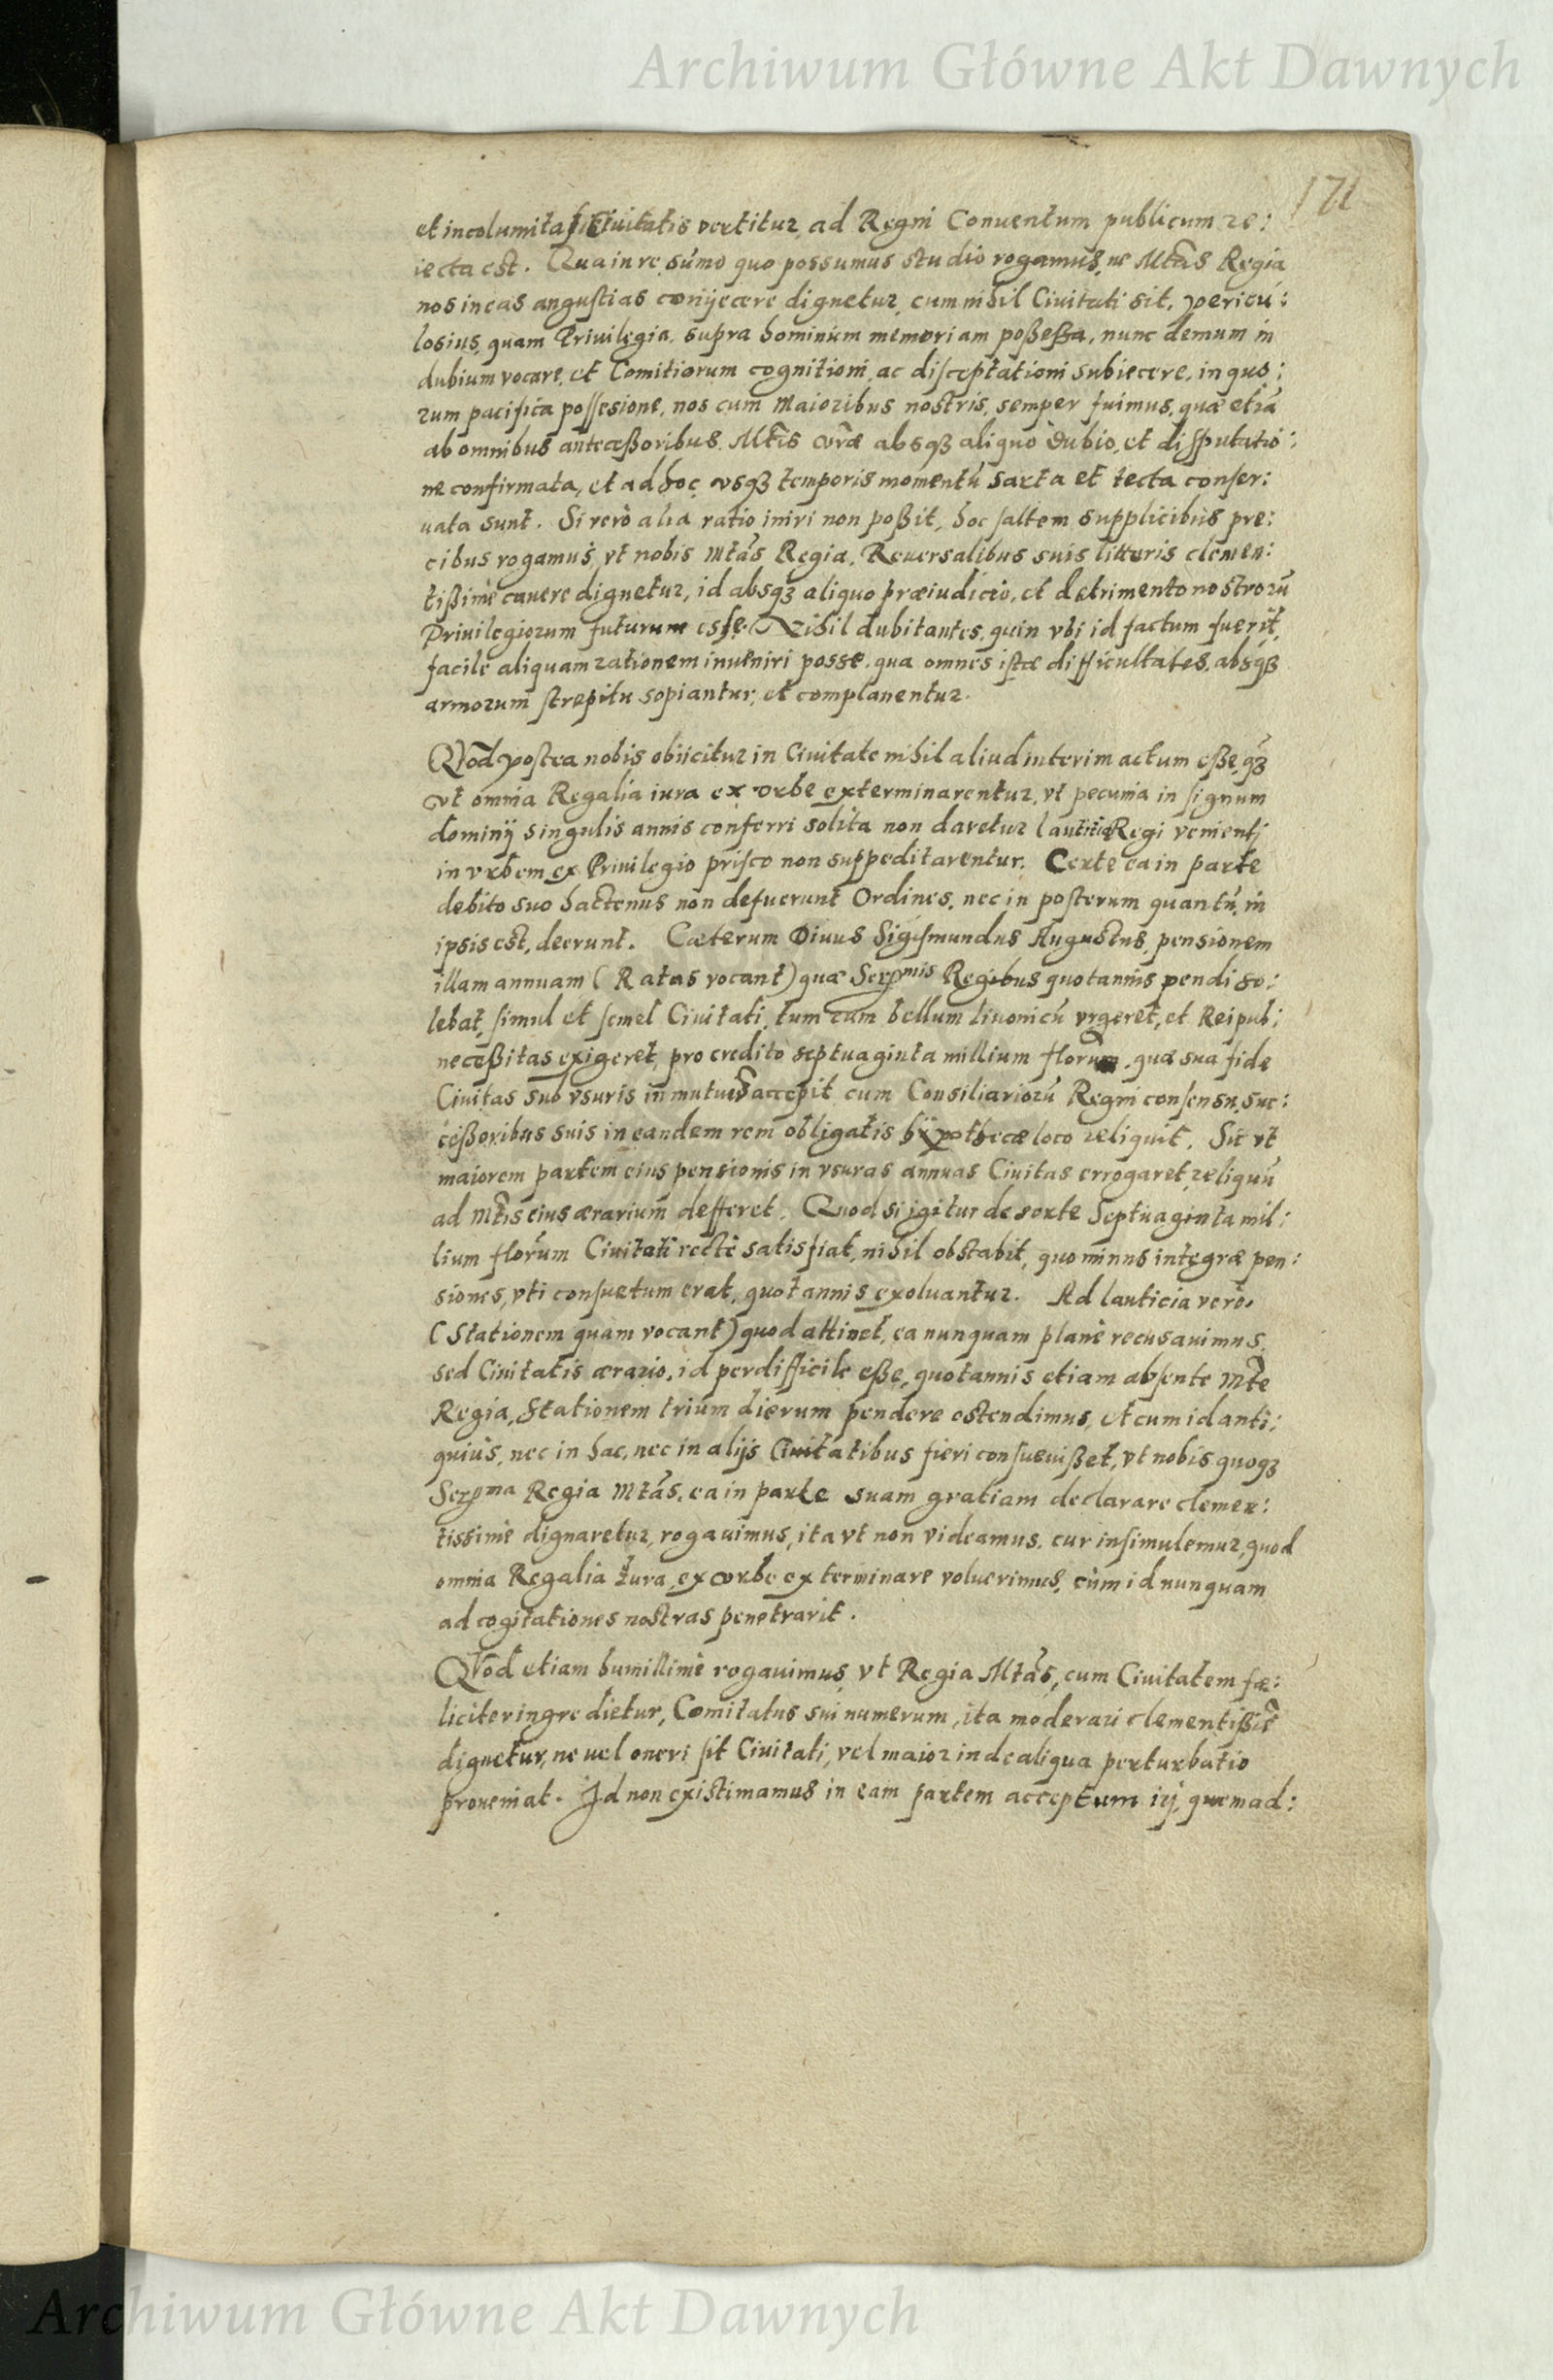 Archiwum Główne Akt Dawnych
171
et incolumitas Ciuitatis vertitur, ad Regni Conuentum publicum re:
iecta est. Qua in re sum̃o quo possumus studio rogamus, ne Mtãs Regia
nos in eas angustias conijecere dignetur, cum nihil Ciuitati sit, pericu:
losius, quam Priuilegia, supra hominum memoriam poßeßa, nunc demum in
dubium vocare, et Comitiorum cognitioni, ac disceptationi subiecere, in quo:
rum pacifica possesione, nos cum Maioribus nostris, semper fuimus, quæ etiã
ab omnibus anteceßoribus Mtis vr̃æ absq3 aliquo dubio, et disputatio:
ne confirmata, et ad hoc vsq3 temporis momentũ sarta et tecta conser:
uata sunt. Si verò alia ratio iniri non poßit, hoc saltem supplicibus pre:
cibus rogamus, vt nobis Mtãs Regia, Reuersalibus suis litteris clemen:
tißimè cauere dignetur, id absq3 aliquo præiudicio, et detrimento nostrorũ
Priuilegiorum futurum esse. Nihil dubitantes, quin vbi id factum fuerit,
facile aliquam rationem inueniri posse, qua omnes istæ difficultates, absq3
armorum strepitu sopiantur, et complanentur.
Qvod postea nobis obiicitur in Ciuitate nihil aliud interim actum eße, q3
vt omnia Regalia iura ex vrbe exterminarentur, vt pecunia in signum
dominij singulis annis conferri solita non daretur lautitia Regi venienti
in vrbem ex Priuilegio prisco non suppeditarentur. Certe ea in parte
debito suo hactenus non defuerunt Ordines, nec in posterum quantũ in
ipsis est, deerunt. Cæterum Diuus Sigismundus Augustus, pensionem
illam annuam (Ratas vocant) quæ Serᵐⁱˢ Regibus quotannis pendi so:
lebat, simul et semel Ciuitati, tum cum bellum liuonicũ vrgeret, et Reipub:
neceßitas exigeret, pro credito septuaginta millium florum, quæ sua fide
Ciuitas sub vsuris in mutuũ accepit cum Consiliariorũ Regni consensu, suc:
ceßoribus suis in eandem rem obligatis hÿpothecæ loco reliquit. Sic vt
maiorem partem eius pensionis in vsuras annuas Ciuitas errogaret, reliquũ
ad Mtis eius ærarium defferet. Quod si igitur de sorte Septuaginta mil:
lium florũm Ciuitati rectè satisfiat, nihil obstabit, quo minus integræ pen:
siones, vti consuetum erat, quotannis exoluantur. Ad lauticia verò,
(Stationem quam vocant) quod attinet, ea nunquam planè recusauimus,
sed Ciuitatis ærario, id perdifficile eße, quotannis etiam absente Mte
Regia, Stationem trium dierum pendere ostendimus, et cum id anti:
quius, nec in hac, nec in alijs Ciuitatibus fieri consueuißet, vt nobis quoq3
Serᵐᵃ Regia Mtãs, ea in parte suam gratiam declarare clemen:
tissimè dignaretur, rogauimus, ita vt non videamus, cur insimulemur, quod
omnia Regalia Iura, ex vrbe exterminare voluerimus, cùm id nunquam
ad cogitationes nostras penetrarit.
Qvod etiam humillimè rogauimus, vt Regia Mtãs, cum Ciuitatem fæ:
liciter ingredietur, Comitatus sui numerum, ita moderari clementissie
dignetur, ne vel oneri sit Ciuitati, vel maior inde aliqua perturbatio
proueniat. Id non existimamus in eam partem acceptum iri, quemad:
Archiwum Główne Akt Dawnych